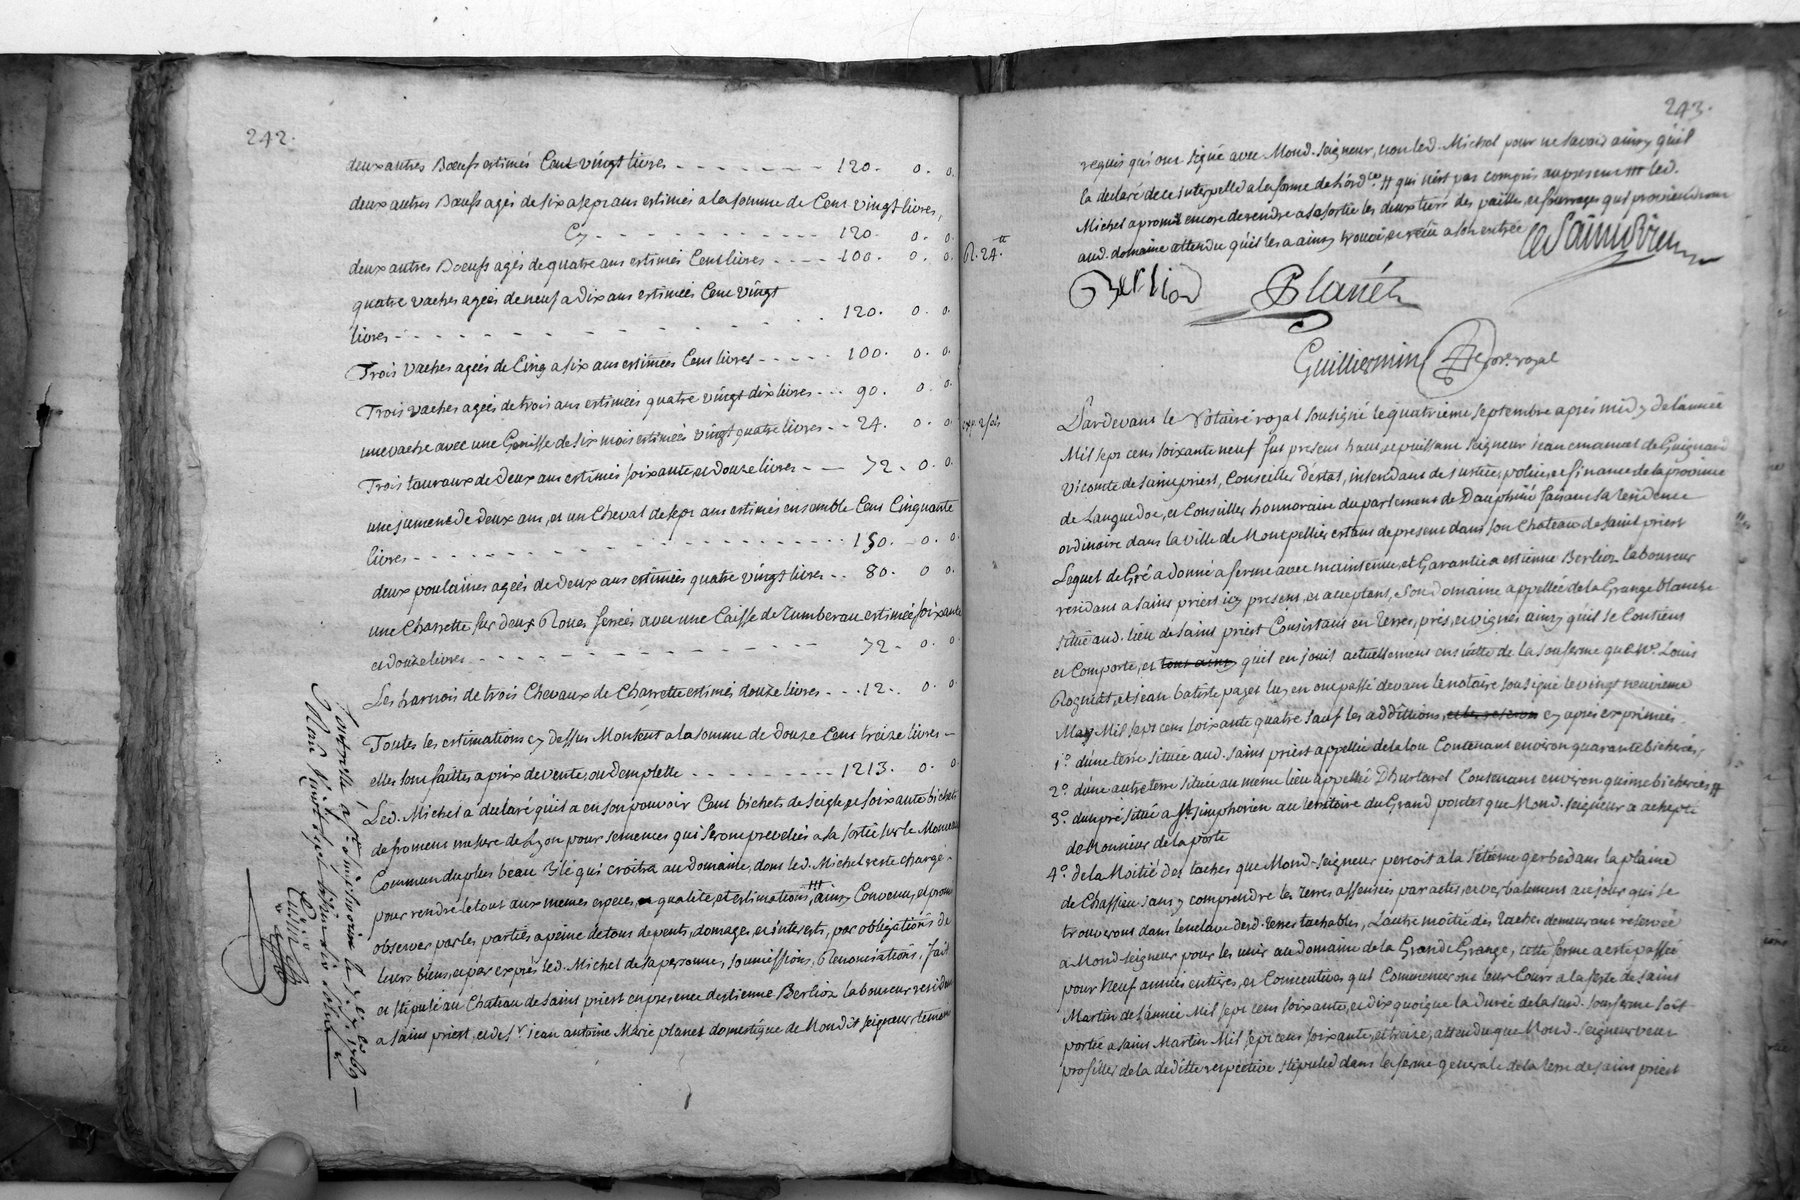 242.
deux autres Bœufs estimés Cent vingt livres - - - - - - - 120. 0. 0.
deux autres Bœufs agés de six a sept ans estimés a la somme de Cent vingt livres,
Cy - - - - - - - - - - - 120. 0. 0.
deux autres Bœufs agés de quatre ans estimés Cent livres - - - - 100. 0. 0.
quatre vaches agées de neuf a dix ans estimées Cent vingt
livres - - - - - - - - - - - 120. 0. 0.
Trois vaches agées de Cinq a six ans estimées Cent livres - - - - - 100. 0. 0.
Trois vaches agées de trois ans estimées quatre vingt dix livres - - - 90. 0. 0
une vache avec une Genisse de six mois estimées vingt quatre livres - - 24. 0. 0
Trois tauraux de deux ans estimés soixante, et douze livres - - 72. 0. 0.
une jument de deux ans, et un Cheval de sept ans estimés ensemble Cent Cinquante
livres - - - - - - - - - - - 150. - 0. 0.
deux poulaines agées de deux ans estimées quatre vingt livres - - 80. 0 0.
une Charrette sur deux Roues ferrées avec une Caisse de Tumberau estimée soixante
et douze livres - - - - - - - - 72. 0. 0
Les harnois de trois Chevaux de Charrette estimés douze livres - - - 12. 0. 0.
Toutes les estimations cy dessus Montent a la somme de douze Cent treize livres -
elles sont faittes a prix de vente, ou d'emplette - - - - - - - - 1213. 0. 0
Led. Michel a declaré qu'il a en son pouvoir Cent bichets de seigle, et soixante bichets
de froment mesure de Lyon pour semences qui seront prevelées a sa sortie sur le Monceau
Commun du plus beau Blé qui croitra au domaine, dont led. Michel reste chargé -
pour rendre le tout aux memes especes, qualité, et estimations, ††† ainsy Convenu, et promis
observer par les parties a peine de tous depents, domages, et interests, par obligations de
leurs biens, et par exprés led. Michel de sa personne, soumissions, Renonciations, fait
et stipulé au Chateau de Saint priest en presence d'estienne Berlioz laboureur residant
a Saint priest, et de Sr. jean antoine Marie planet domestique de Mondit seigneur, temoins
243.
requis qui ont signé avec Mond. Seigneur, non led. Michel pour ne savoir ainsy qu'il
la declaré de ce interpellé a la forme de l'ord.ce †† qui n'est pas compris au present ††† led.
Michel a promis encore de rendre a sa sortie les deux tiers des pailles, et fourrages qui proviendront
aud. domaine attendu qu'il les a ainsy trouvé, et reçu a son entrée
R. 24.tt
Berlioz Planét
Guillermin no.re royal
Pardevant le Notaire royal soussigné le quatrieme septembre aprés midy de l'année
Mil sept cent soixante neuf fut present haut, et puissant seigneur jean emanuel de Guignard
Vicomte de saint priest, Conseiller d'estat, intendant de justice, police, et finance de la province
de Languedoc, et Conseiller honnoraire du parlement de Dauphiné faisant sa residence
ordinaire dans la ville de Montpellier estant de present dans son Chateau de saint priest
Lequel de Gré a donné a ferme avec maintenue, et Garantie a estienne Berlioz laboureur
residant a saint priest icy present, et acceptant, son domaine appellée de la Grange blanche
située aud. lieu de saint priest Consistant en Terres, prés, et vignes ainsy qu'il se Contient
et Comporte, et tout ainsy qu'il en jouit actuellement en suitte de la sous ferme que Mr. Louis
Rognat, et jean batiste paget luy en ont passé devant le notaire soussigné le vingt neuvieme
May Mil sept cent soixante quatre sauf les additions, et les reserves cy aprés exprimées.
1.o d'une terre située aud. saint priest appellée delalou Contenant environ quarante bicherées,
2.o d'une autre terre située au meme lieu appellée Contenant environ quinze bicherées ††
3.o d'un pré situé a St. simphorien au territoire du Grand pontet que Mond. seigneur a achepté
de Monsieur de la porte
4.o de la Moitié des taches que Mond. seigneur percoit a la setieme gerbe dans la plaine
de Chassieu sans y comprendre les Terres affensées par actes, et verbalement au jour qui se
trouveront dans l'enclave desd. terres tachables, L'autre moitié des Taches demeurant reservée
a Mond seigneur pour les unir au domaine de la Grande Grange, cette ferme a esté passée
pour Neuf années entieres, et Consecutives qui Commenceront leur Cours a la feste de saint
Martin de l'année Mil sept cent soixante, et dix quoique la durée de la sud. sous ferme soit
portée a saint Martin Mil sept cent soixante, et treize, attendu que Mond. Seigneur veut
profitter de la deditte respective stipulée dans la ferme generale de la terre de saint priest